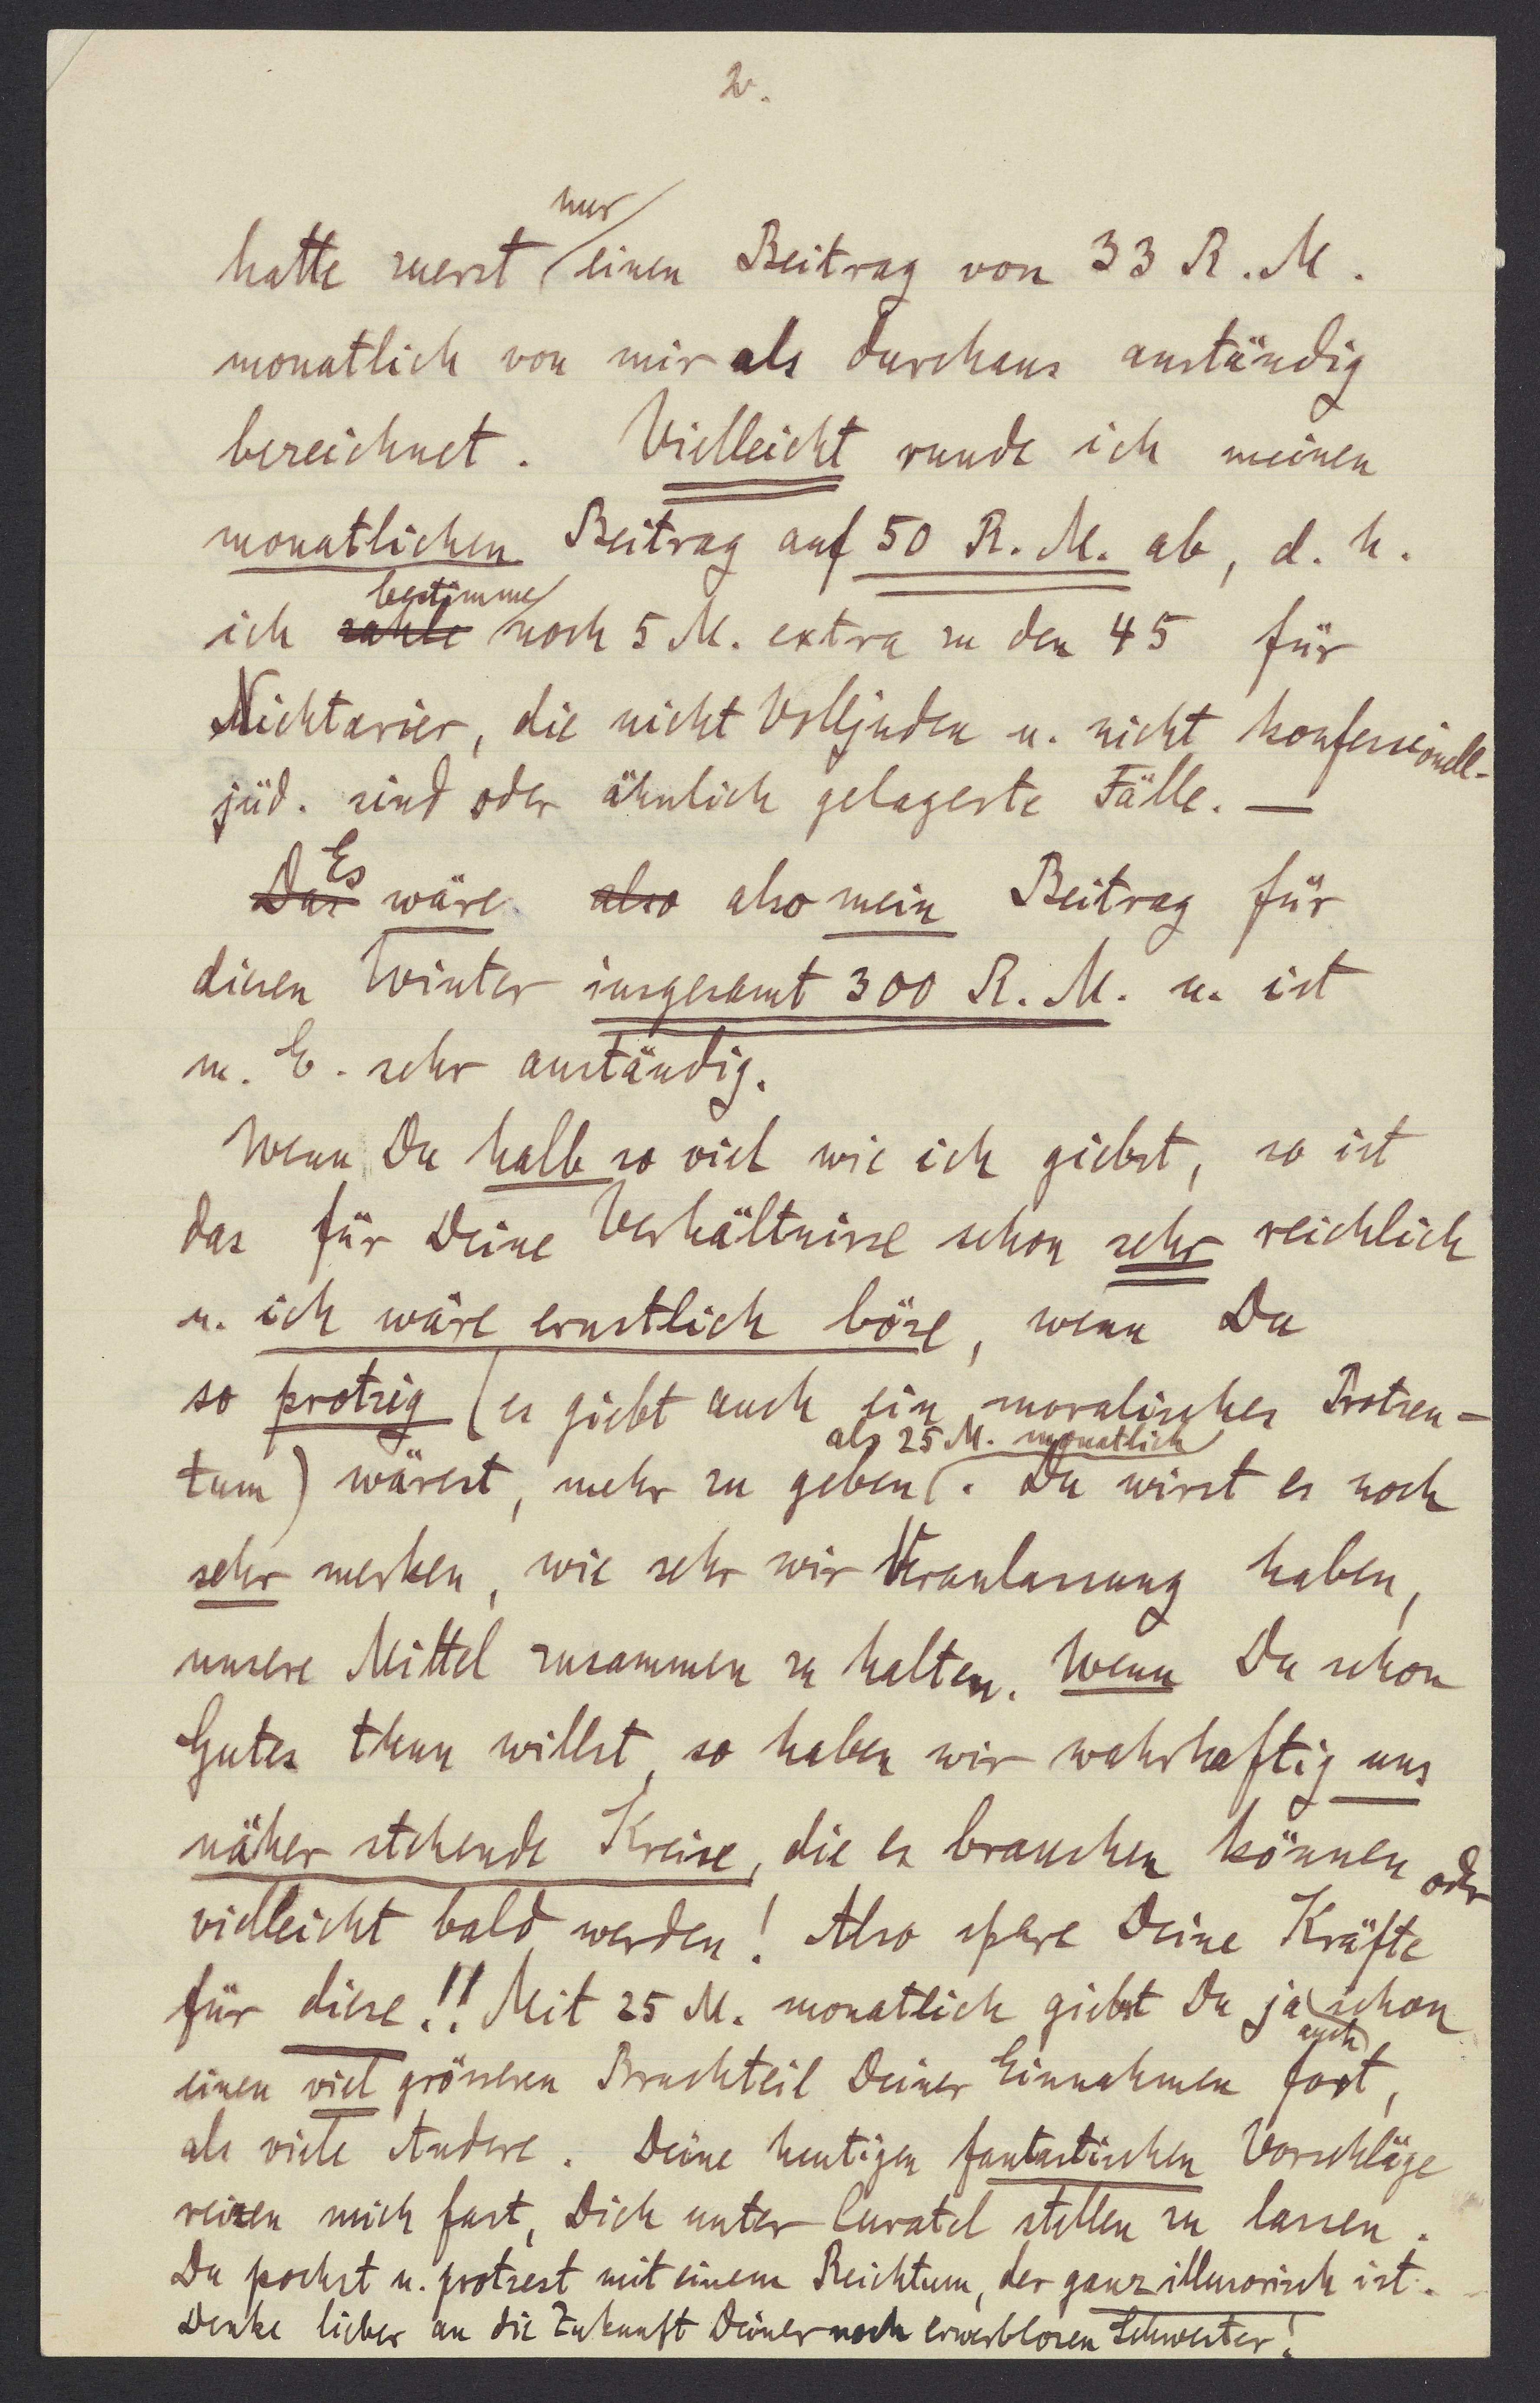 2.
nur
hatte zuerst einen Beitrag von 33 R.M.
monatlich von mir als durchaus anständig
bezeichnet. Vielleicht runde ich meinen
monatlichen Beitrag auf 50 R.M. ab, d.h.
bestimme
ich zahle noch 5 M. extra zu den 45 für
Nichtarier, die nicht Volljuden u. nicht konfessionell-
jüd. sind oder ähnlich gelagerte Fälle. —
Es
Das wäre also also mein Beitrag für
diesen Winter insgesamt 300 R.M. u. ist
m. E. sehr anständig.
Wenn Du halb so viel wie ich giebst, so ist
das für Deine Verhältnisse schon sehr reichlich
u. ich wäre ernstlich böse, wenn Du
so protzig (es giebt auch ein moralisches Protzen-
als 25 M. monatlich
tum) wärest, mehr zu geben. Du wirst es noch
sehr merken, wie sehr wir Veranlassung haben,
unsere Mittel zusammen zu halten. Wenn Du schon
Gutes thun willst, so haben wir wahrhaftig uns
näher stehende Kreise, die es brauchen können oder
vielleicht bald werden! Also spare Deine Kräfte
für diese!! Mit 25 M. monatlich giebst Du ja schon
auch
einen viel grösseren Bruchteil Deiner Einnahmen fort,
als viele Andere. Deine heutigen fantastischen Vorschläge
reizen mich fast, Dich unter Curatel stellen zu lassen.
Du pochst u. protzest mit einem Reichtum, der ganz illusorisch ist.
Denke lieber an die Zukunft Deiner noch erwerblosen Schwester!